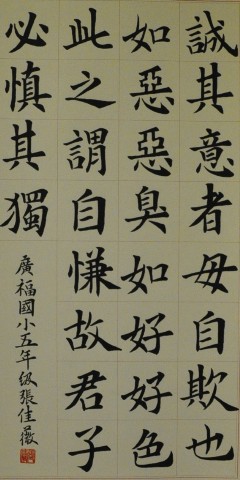 誠其意者毋自欺也
如惡惡臭如好好色
此之謂自慊故君子
必慎其獨
廣福國小五年級張佳薇